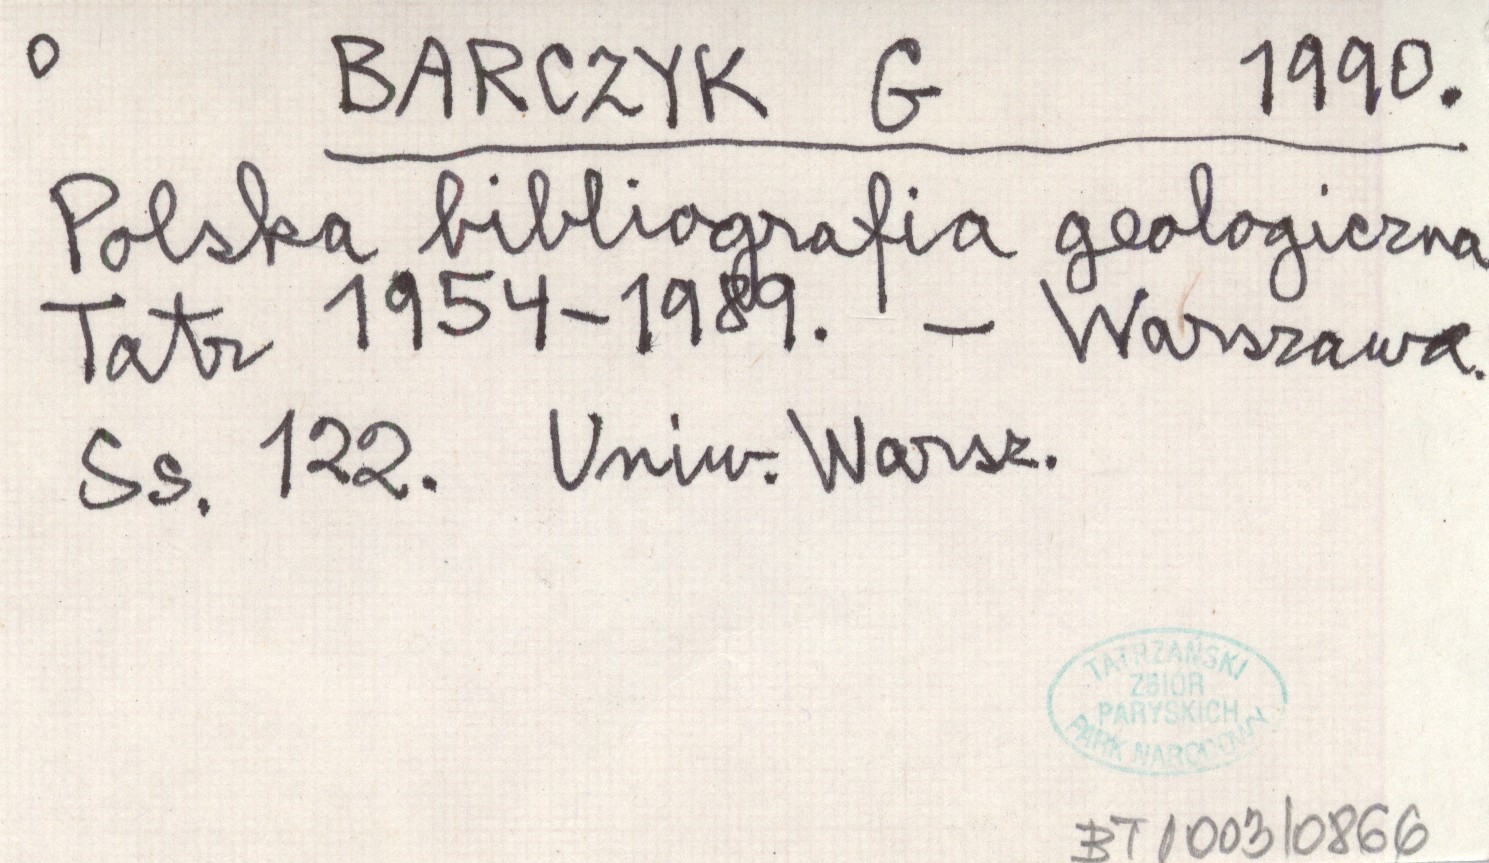 o BARCZYK G 1990.
Polska bibliografia geologiczna
Tatr 1954-1989. — Warszawa.
Ss. 122. Uniw. Warsz.
TATRZAŃSKI
ZBIÓR
PARYSKICH
PARK NARODOWY
BT/003/0866